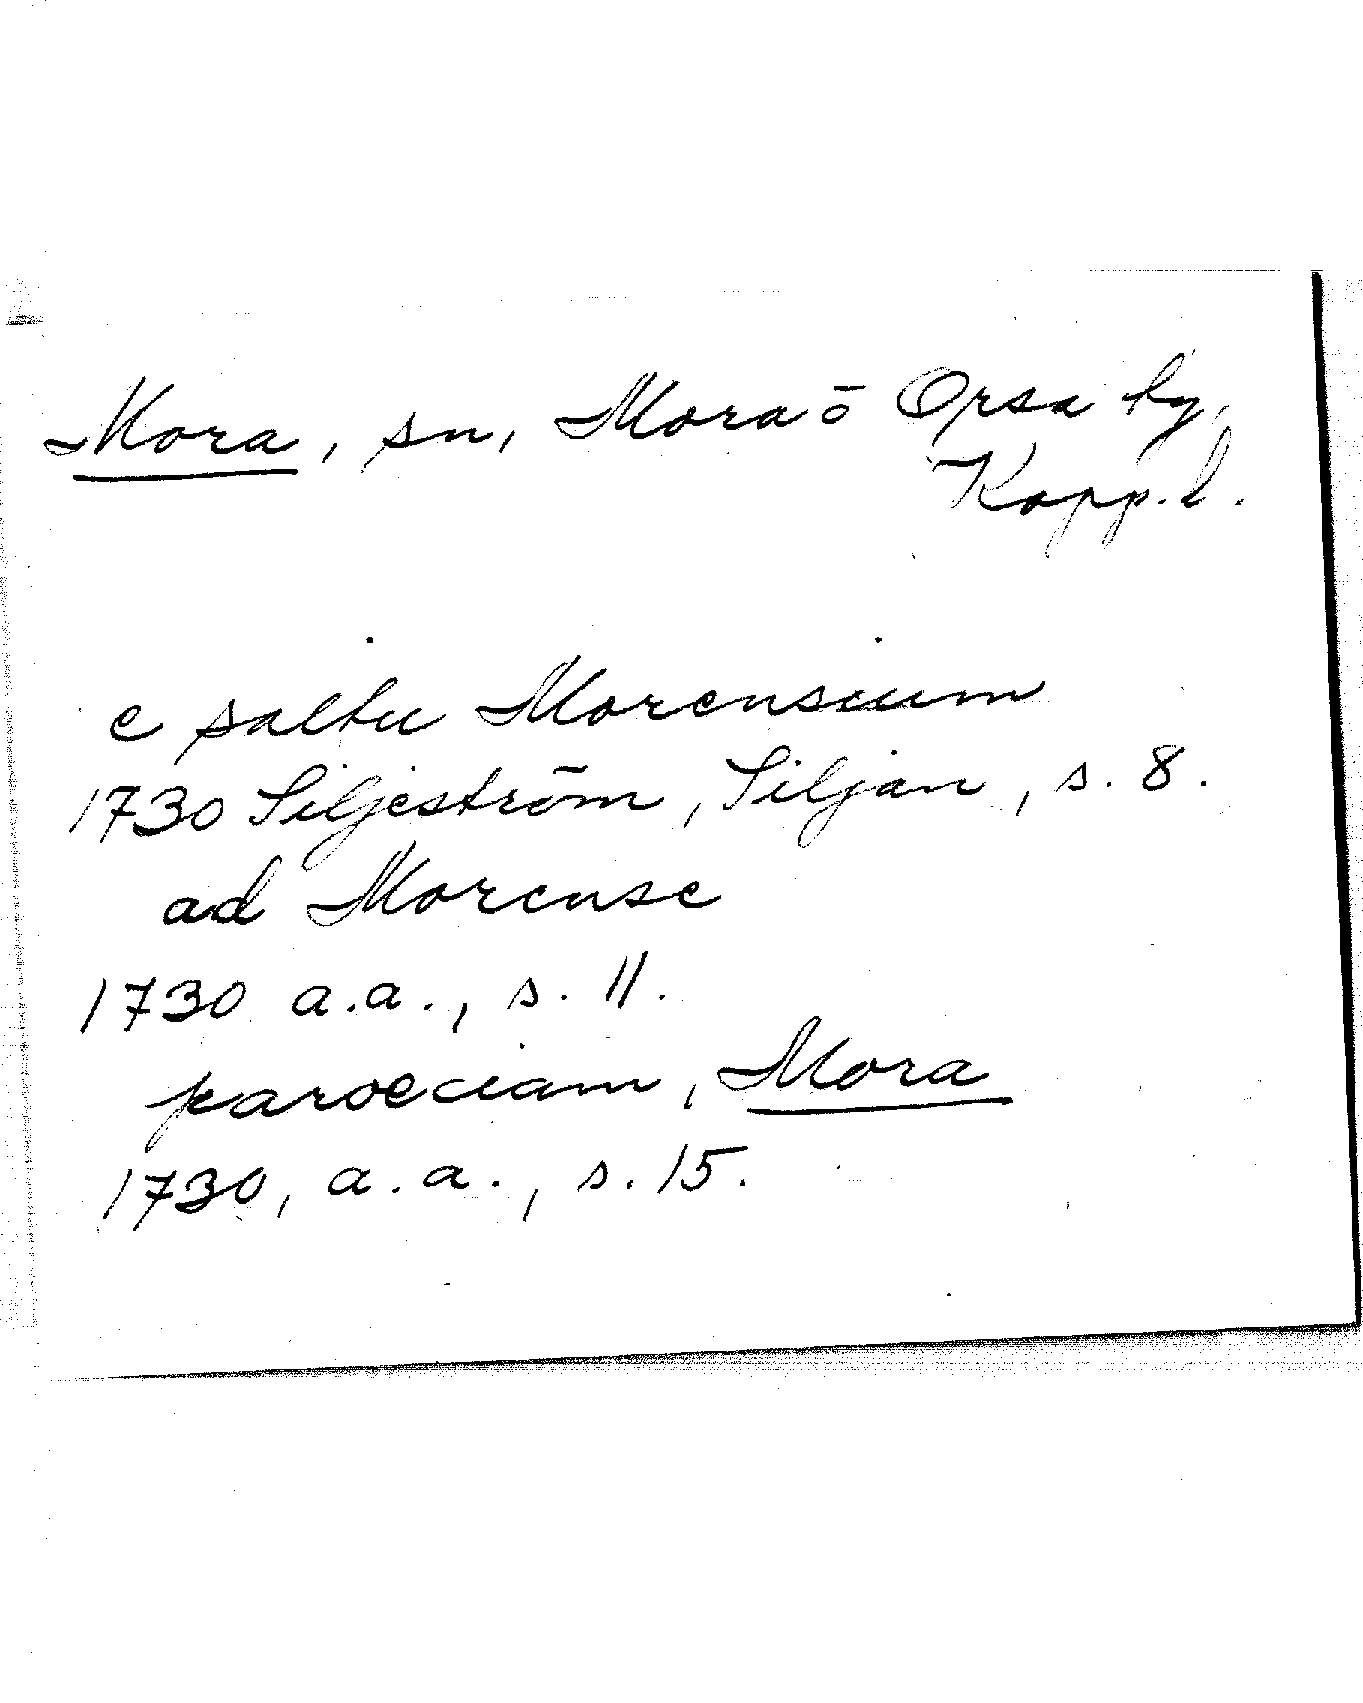 Mora, sn, Mora ō Orsa hg,
Kopp.l.
e saltu Morensium
1730 Siljeström, Siljan, s. 8.
ad Morense
1730 a.a., s. 11.
paroeciam, Mora
1730, a.a., s. 15.